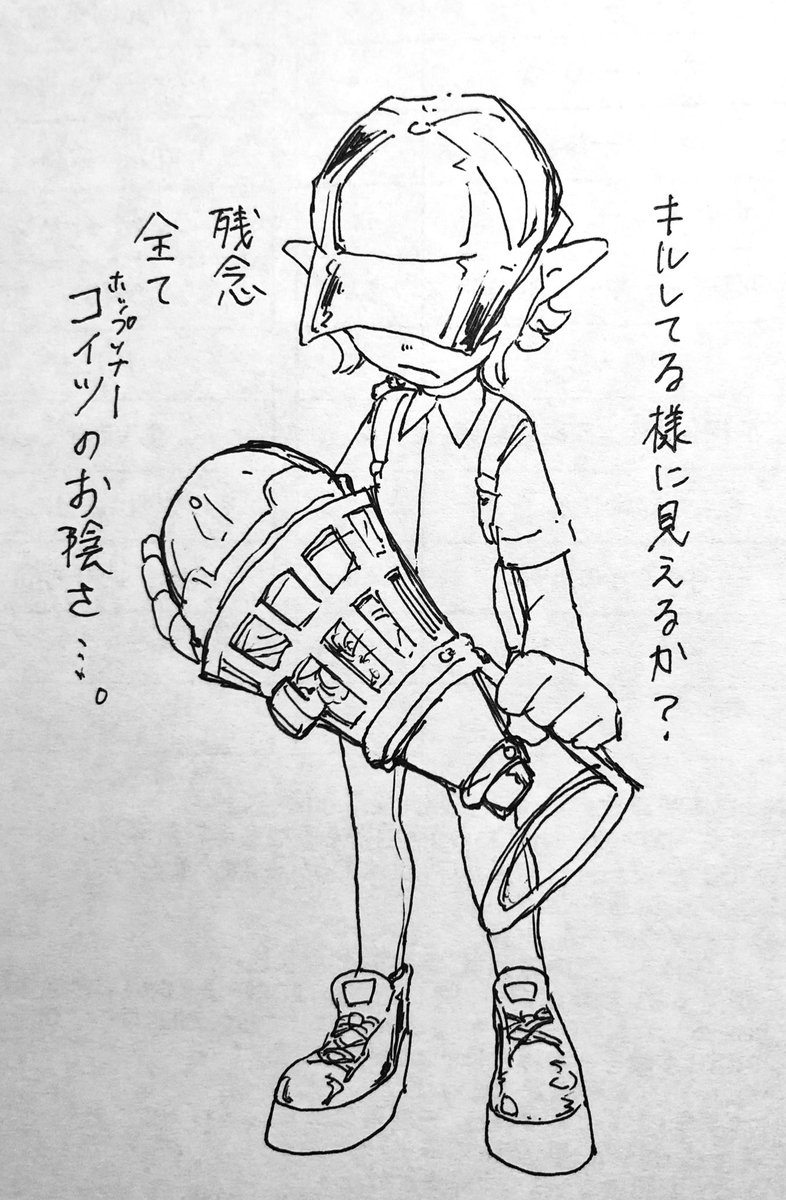 キルしてる様に見えるか?
残念
全て
ホップソナー
コイツのお陰さ…。